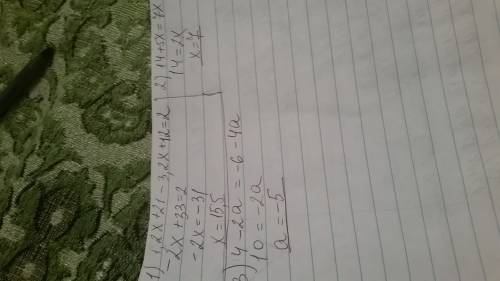 1) 1,2x+21-3,2x+12=2
-2x+33=2
-2x=-31
x=15,5
2) 14+5x=7x
14=2x
x=7
3) 4-2a=-6-4a
10=-2a
a=-5